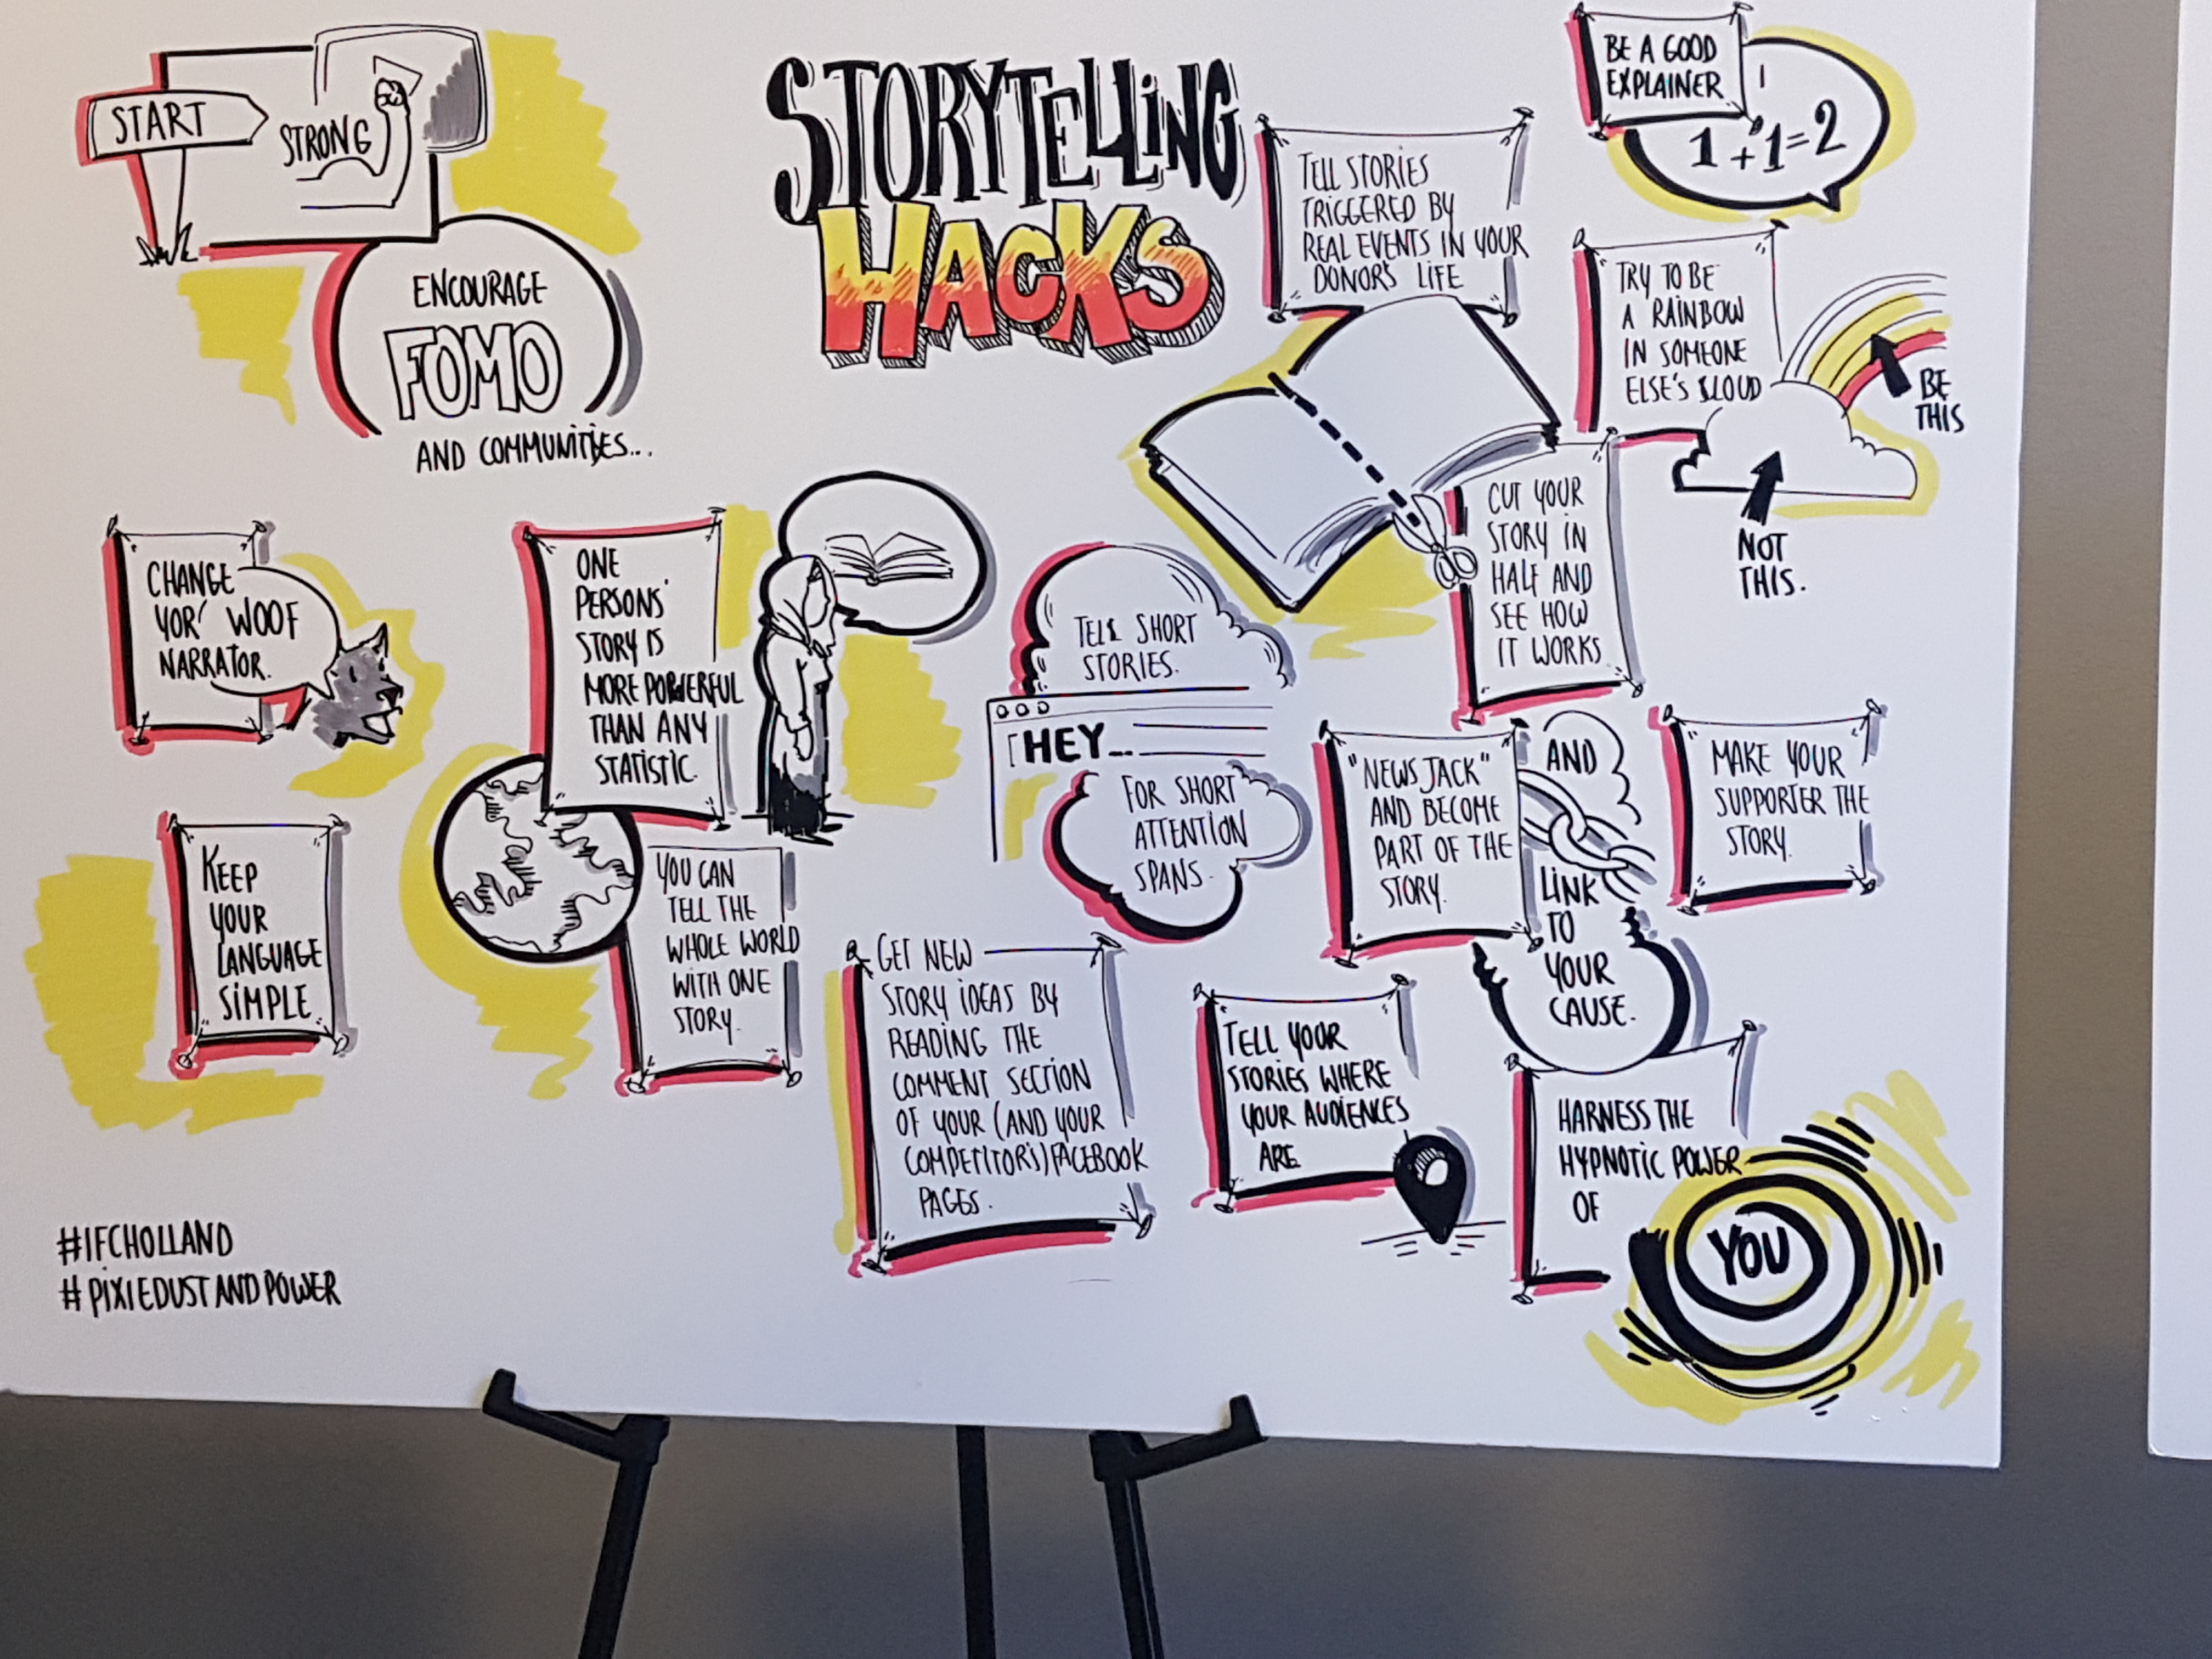 START
STRONG
ENCOURAGE
FOMO
AND COMMUNITIES...
STORYTELLING
HACKS
TELL STORIES
TRIGGERED BY
REAL EVENTS IN YOUR
DONOR'S LIFE
BE A GOOD
EXPLAINER
1+1=2
TRY TO BE
A RAINBOW
IN SOMEONE
ELSE'S CLOUD
BE
THIS
NOT
THIS.
CUT YOUR
STORY IN
HALF AND
SEE HOW
IT WORKS
CHANGE
YOR'
NARRATOR.
WOOF
ONE
PERSONS'
STORY IS
MORE POWERFUL
THAN ANY
STATISTIC.
TELL SHORT
STORIES.
HEY...
FOR SHORT
ATTENTION
SPANS.
"NEWS JACK"
AND BECOME
PART OF THE
STORY.
AND
LINK
TO
YOUR
CAUSE.
MAKE YOUR
SUPPORTER THE
STORY.
KEEP
YOUR
LANGUAGE
SIMPLE
YOU CAN
TELL THE
WHOLE WORLD
WITH ONE
STORY.
GET NEW
STORY IDEAS BY
READING THE
COMMENT SECTION
OF YOUR (AND YOUR
COMPETITOR'S) FACEBOOK
PAGES.
TELL YOUR
STORIES WHERE
YOUR AUDIENCES
ARE
HARNESS THE
HYPNOTIC POWER
OF
YOU
#IFCHOLLAND
#PIXIEDUSTANDPOWER